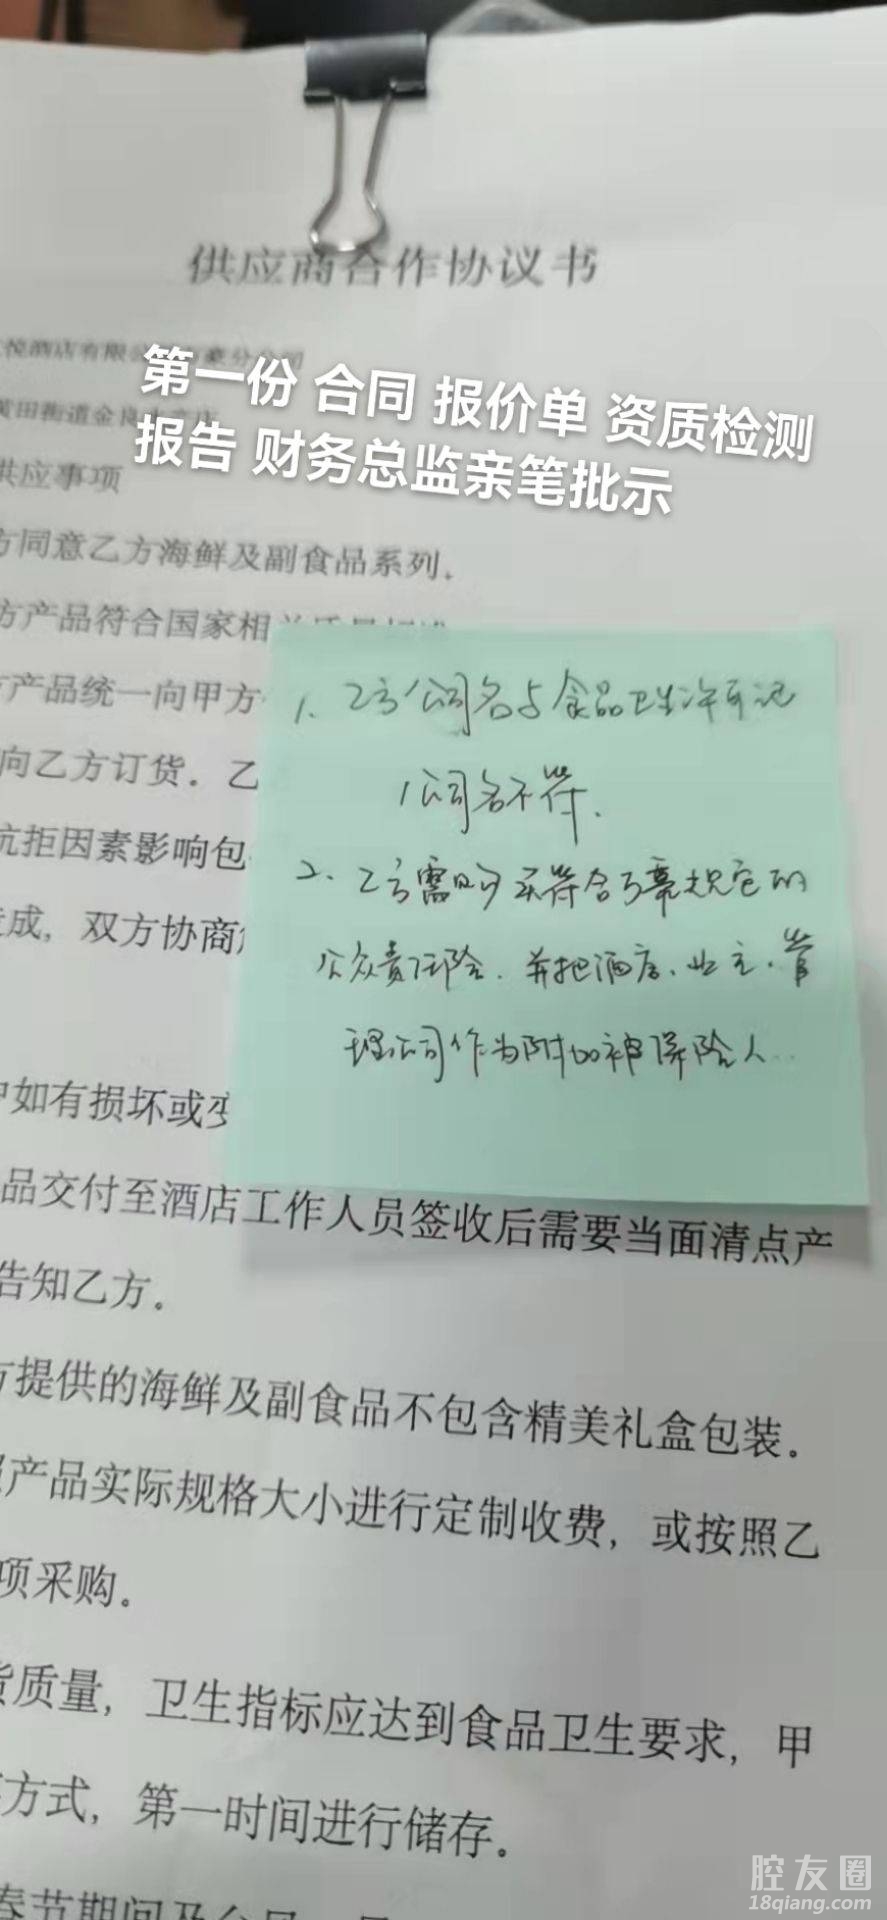 供应商合作协议书
悦酒店有限公
黄田街道金良
第一份 合同 报价单 资质检测
报告 财务总监亲笔批示
供应事项
方同意乙方海鲜及副食品系列.
方产品符合国家相
产品统一向甲方
向乙方订货. 乙
抗拒因素影响包
成, 双方协商
1. 乙方公司名与食品卫生许可证
公司名不符.
2. 乙方需购买符合万豪规定的
公众责任险. 并把酒店、业主、管
理公司作为附加被保险人..
如有损坏或变
品交付至酒店工作人员签收后需要当面清点产
告知乙方.
方提供的海鲜及副食品不包含精美礼盒包装.
产品实际规格大小进行定制收费, 或按照乙
项采购.
货质量, 卫生指标应达到食品卫生要求, 甲
方式, 第一时间进行储存.
春节期间及台风
腔友圈
18qiang.com